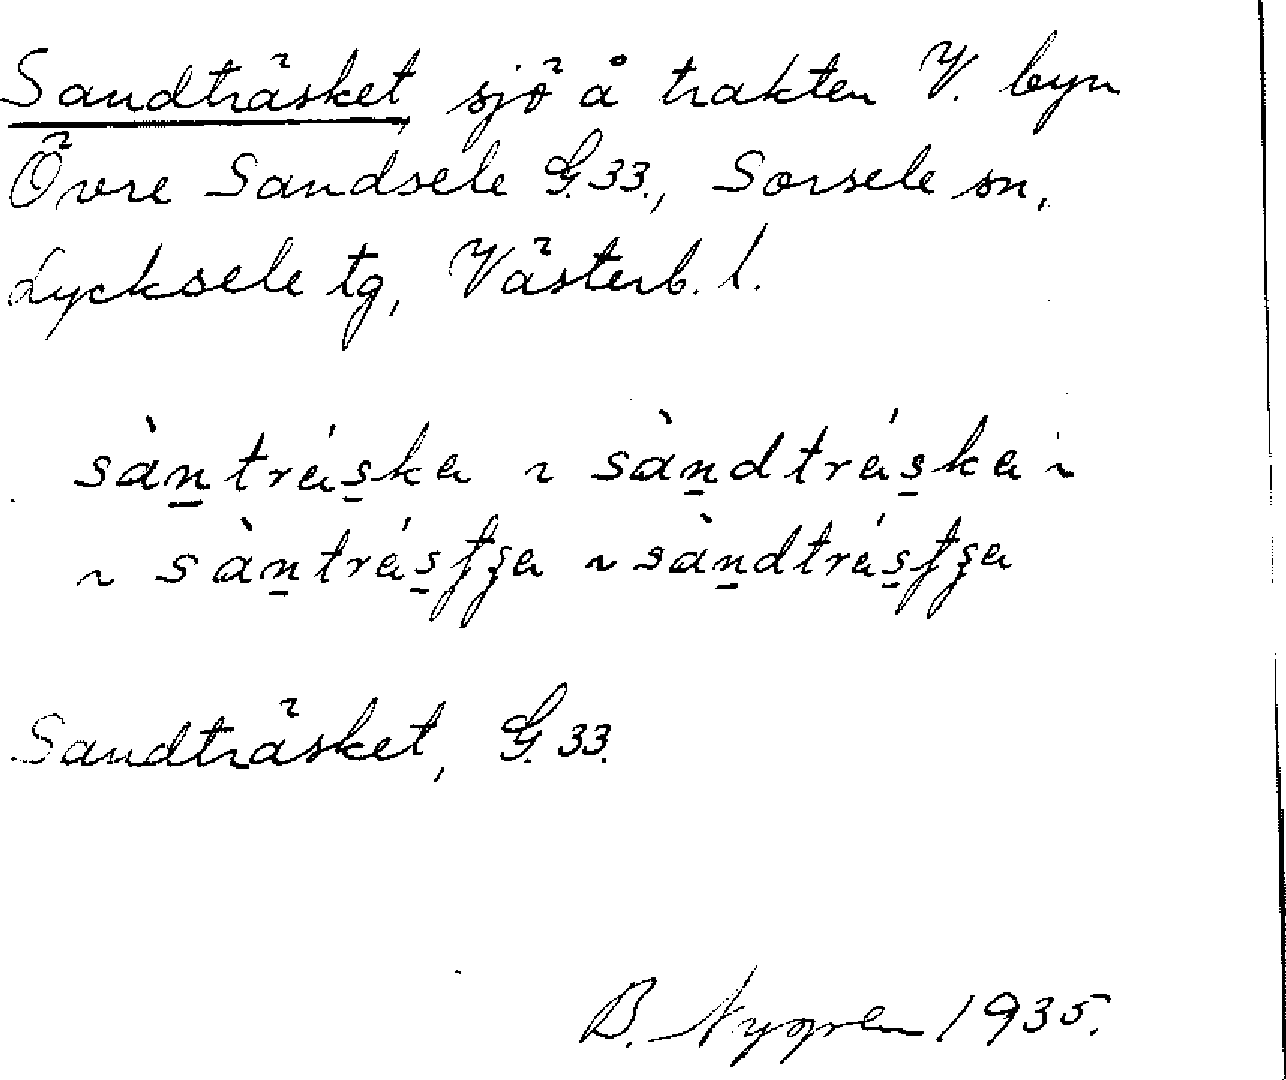 Sandträsket, sjö å trakten V. byn
Övre Sandsele G.33., Sorsele sn,
Lycksele tg, Västerb. l.
sàn̠trás̠ka ~ sàn̠dtrás̠ka ~
~ sàn̠trás̠ʃʒa ~ sàn̠dtrás̠ʃʒa
Sandträsket, G.33.
B. Nygren 1935.